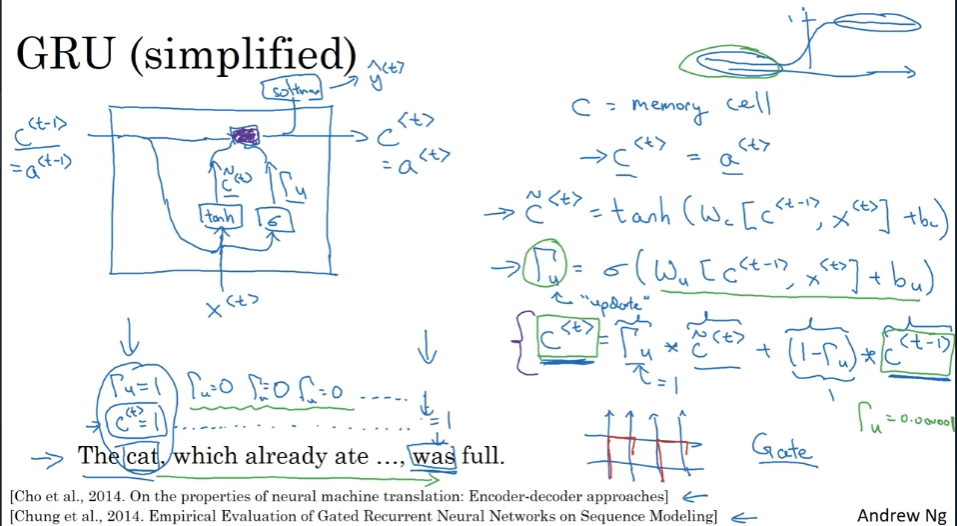 GRU (simplified)
softmax → ŷ^<t>
c^<t-1>
= a^<t-1>
c̃^<t>
Γu
tanh
σ
c^<t>
= a^<t>
x^<t>
1
C = memory cell
→ c^<t> = a^<t>
→ c̃^<t> = tanh (Wc [c^<t-1>, x^<t>] + bc)
→ Γu = σ (Wu [c^<t-1>, x^<t>] + bu)
"update"
c^<t> = Γu * c̃^<t> + (1-Γu) * c^<t-1>
= 1
Γu = 0.000001
Gate
Γu=1 Γu=0 Γu=0 Γu=0 .....
c^<t>=1 .......... = 1
→ The cat, which already ate ..., was full.
[Cho et al., 2014. On the properties of neural machine translation: Encoder-decoder approaches] ←
[Chung et al., 2014. Empirical Evaluation of Gated Recurrent Neural Networks on Sequence Modeling] ←
Andrew Ng